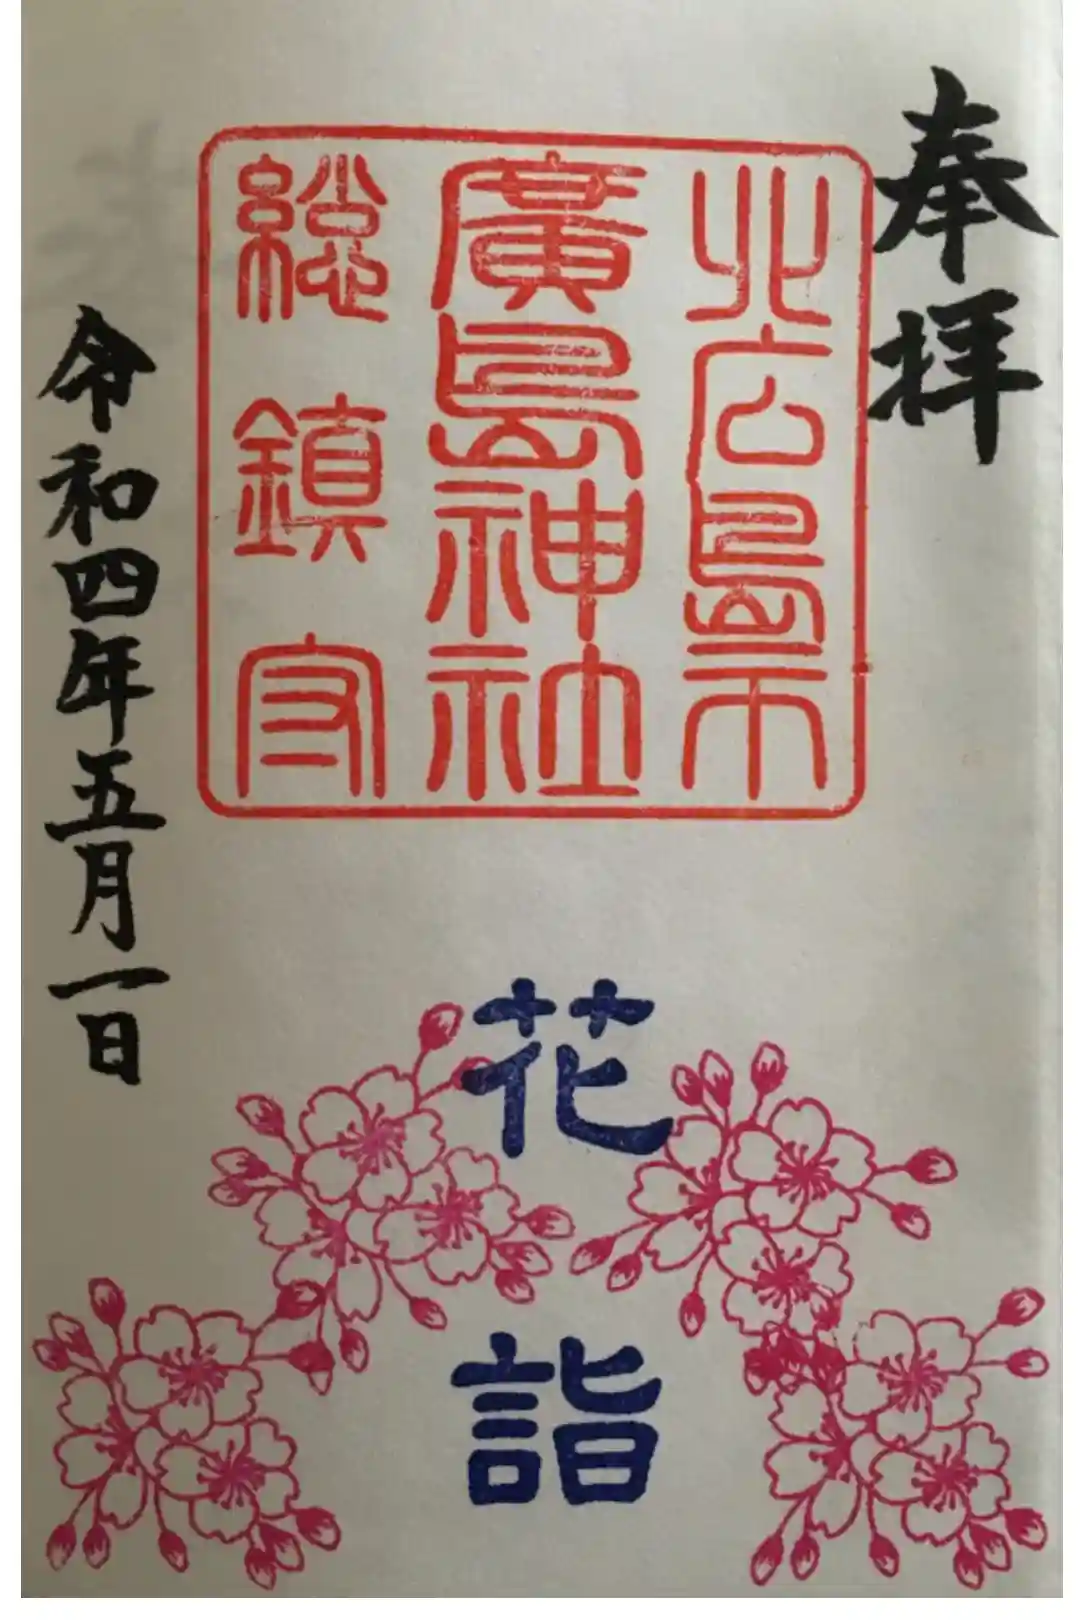 奉拝
北広島市
廣島神社
総鎮守
令和四年五月一日
花詣